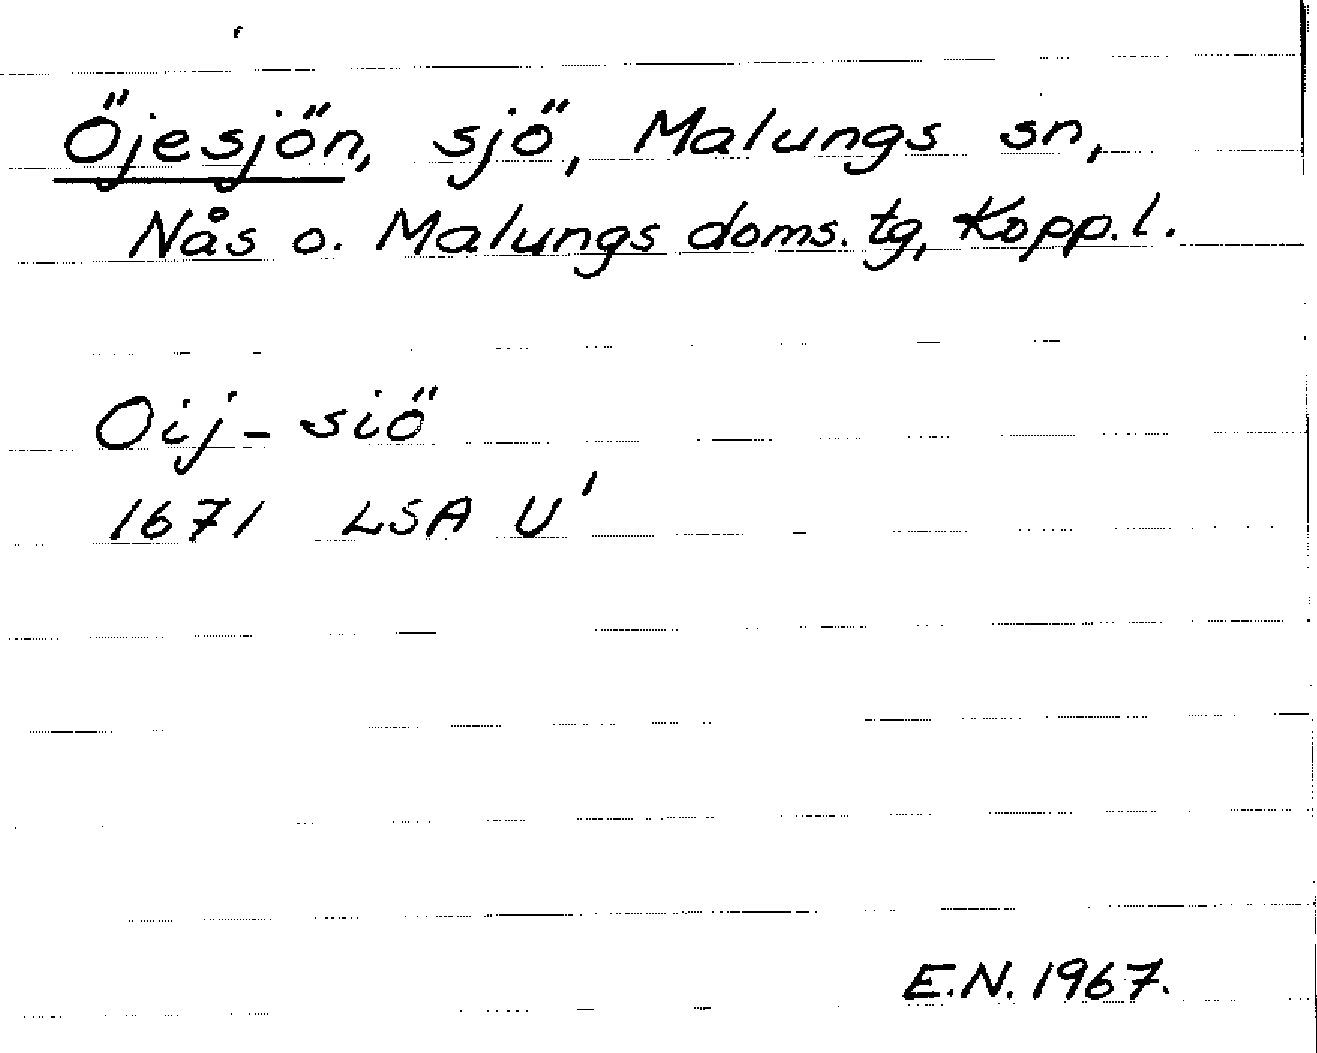 Öjesjön, sjö, Malungs sn,
Nås o. Malungs doms. tg, Kopp. l.
Oij-siö
1671 LSA U'
E.N. 1967.